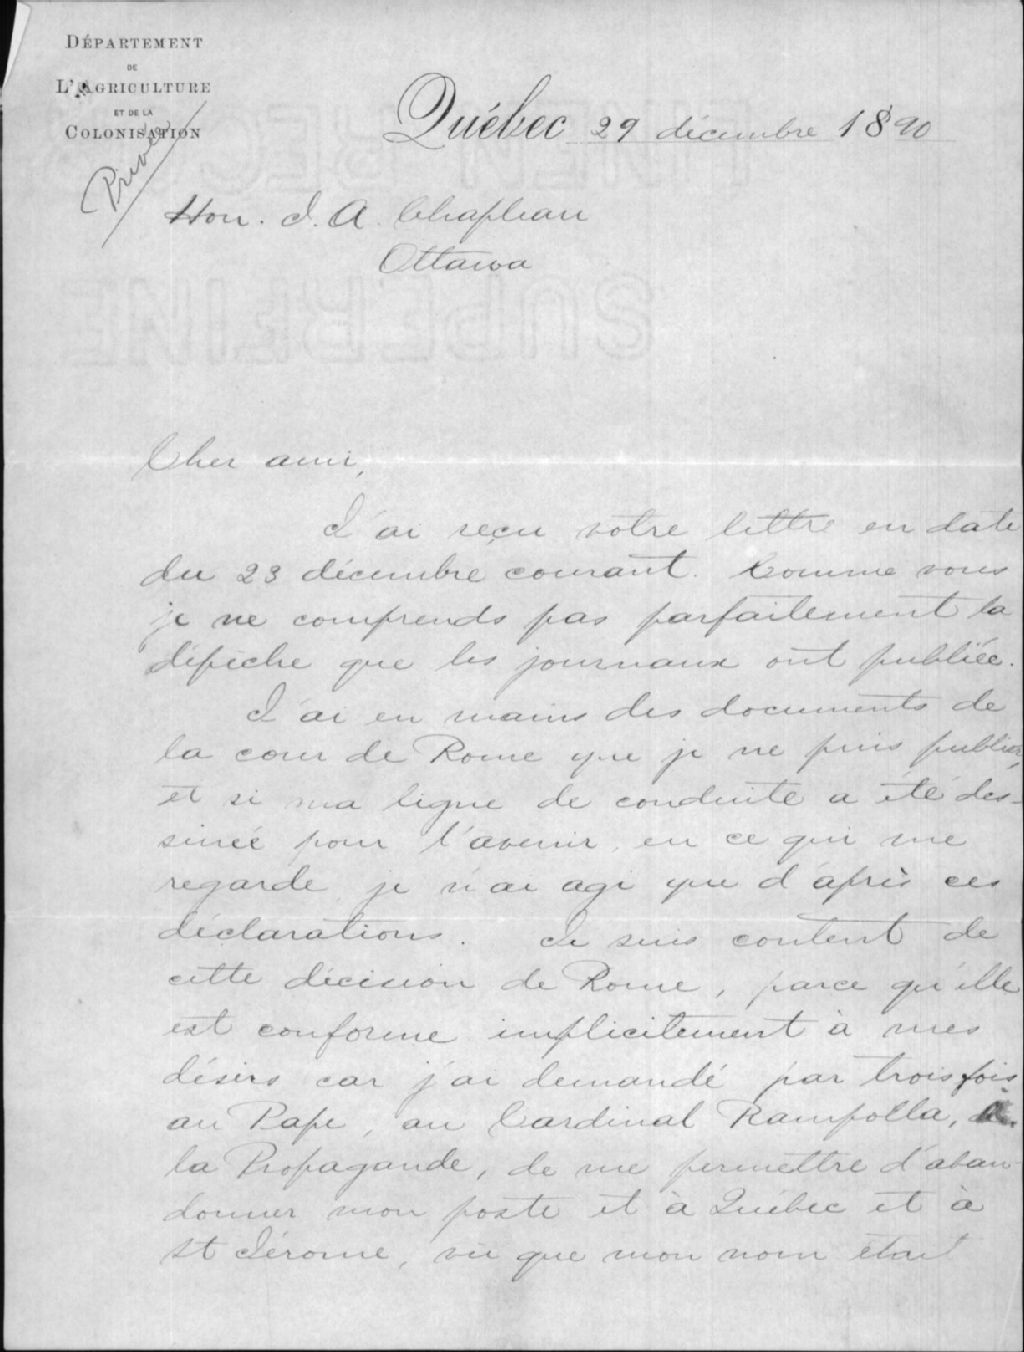 DÉPARTEMENT
DE
L'AGRICULTURE
ET DE LA
COLONISATION
Privée
Québec 29 décembre 1890
Hon. J. A. Chapleau
Ottawa
SUPERFINE
Cher ami,
J'ai reçu votre lettre en date
du 23 décembre courant. Comme vous
je ne comprends pas parfaitement la
dépêche que les journaux ont publiée.
J'ai en mains des documents de
la cour de Rome que je ne puis publier,
et si ma ligne de conduite a été des-
sinée pour l'avenir, en ce qui me
regarde, je n'ai agi que d'après ces
déclarations. Je suis content de
cette décision de Rome, parce qu'elle
est conforme implicitement à mes
désirs car j'ai demandé par trois fois
au Pape, au Cardinal Rampolla, à
la Propagande, de me permettre d'aban-
donner mon poste et à Québec et à
St Jérome, vu que mon nom était